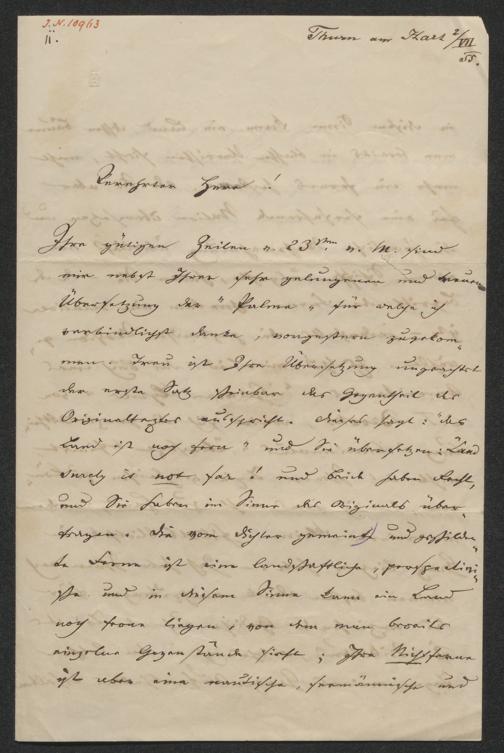 J.N. 109613
II.
Thurn am Hart 2/VII
55.
Verehrter Herr!
Ihre gütigen Zeilen v. 23sten v. M. sind
mir nebst Ihrer sehr gelungenen und treuen
Übersetzung der "Palme" für welche ich
verbindlichst danke, vorgestern zugekom-
men. Treu ist Ihre Übersetzung ungeachtet
der erste Satz scheinbar das Gegentheil des
Originaltextes ausspricht. Dieses sagt: "das
Land ist noch fern" und Sie übersetzen: "Land
surely is not far! und beide haben Recht,
und Sie haben im Sinne des Originals über-
tragen. Die vom Dichter gemeinte und geschilder-
te Ferne ist eine landschaftliche, perspectivi-
sche und in diesem Sinne kann ein Land
noch ferne liegen, von dem man bereits
einzelne Gegenstände sieht; Ihre Nichtferne
ist aber eine nautische, seemännische und